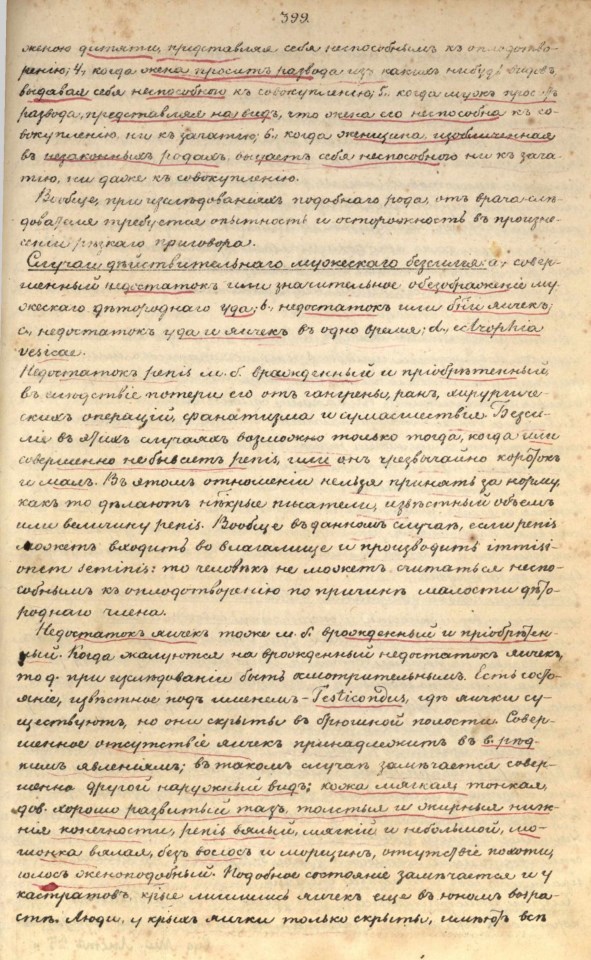 399.
женою дитяти, представляя себя неспособнымъ къ оплодотво-
ренію; 4, когда жена проситъ развода изъ какихъ нибудь видовъ
выдавая себя неспособною къ совокупленію; 5., когда мужъ проситъ
развода, представляя на видъ, что жена его неспособна къ со-
вокупленію, ни къ зачатію; 6., когда женщина изобличенная
въ незаконныхъ родахъ, выдаетъ себя неспособною ни къ зача-
тію, ни даже къ совокупленію.
Вообще, при изслѣдованіяхъ подобнаго рода, отъ врача слѣ-
дователя требуется опытность и осторожность въ произне-
сеніи рѣзкаго приговора.
Случаи дѣйствительнаго мужескаго безсилія: а, совер-
шенный недостатокъ или значительное обезображеніе му-
жескаго дѣтороднаго уда; b, недостатокъ или яичекъ;
с, недостатокъ уда и яичекъ въ одно время; d, ectrophia
vesicae.
Недостатокъ penis м. б. врожденный и пріобрѣтенный
въ слѣдствіе потери его отъ гангрены, ранъ, хирургиче-
скихъ операцій, фанатизма и сумасшествія. Безси-
ліе въ этихъ случаяхъ возможно только тогда, когда или
совершенно не бываетъ penis, или онъ чрезвычайно коротокъ
и малъ. Въ этомъ отношеніи нельзя принять за норму,
какъ то дѣлаютъ нѣкрые писатели, извѣстный объемъ
или величину penis. Вообще въ данномъ случаѣ, если penis
можетъ входить во влагалище и производить immissi-
onem seminis: то человѣкъ не можетъ считаться неспо-
собнымъ къ оплодотворенію по причинѣ малости дѣто-
роднаго члена.
Недостатокъ яичекъ тоже м. б. врожденный и пріобрѣтен-
ный. Когда жалуются на врожденный недостатокъ яичекъ,
то д. при изслѣдованіи быть осмотрительнымъ. Есть состо-
яніе, извѣстное подъ именемъ - Testicondus, гдѣ яички су-
ществуютъ, но они скрыты въ брюшной полости. Совер-
шенное отсутствіе яичекъ принадлежитъ къ в. рѣд-
кимъ явленіямъ; въ такомъ случаѣ замѣчается совер-
шенно другой наружный видъ; кожа мягкая, тонкая,
дов. хорошо развитый тазъ, толстыя и жирныя ниж-
нія конечности, penis вялый, мягкій и небольшой, мо-
шонка вялая, безъ волосъ и морщинъ, отсутствіе похоти,
голосъ женоподобный. Подобное состояніе замѣчается и у
кастратовъ, крые лишились яичекъ еще въ юномъ возра-
стѣ. Люди, у крыхъ яички только скрыты, имѣютъ всѣ